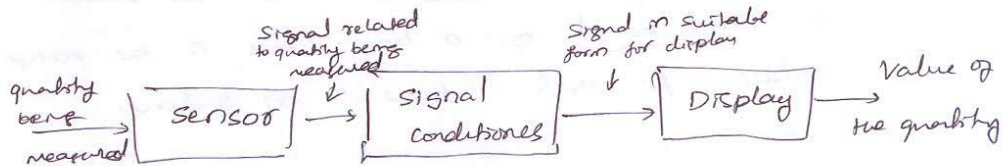 Signal related
to quantity being
measured
Signal in suitable
form for display
quantity
being
measured
Sensor
Signal
conditioner
Display
Value of
the quantity